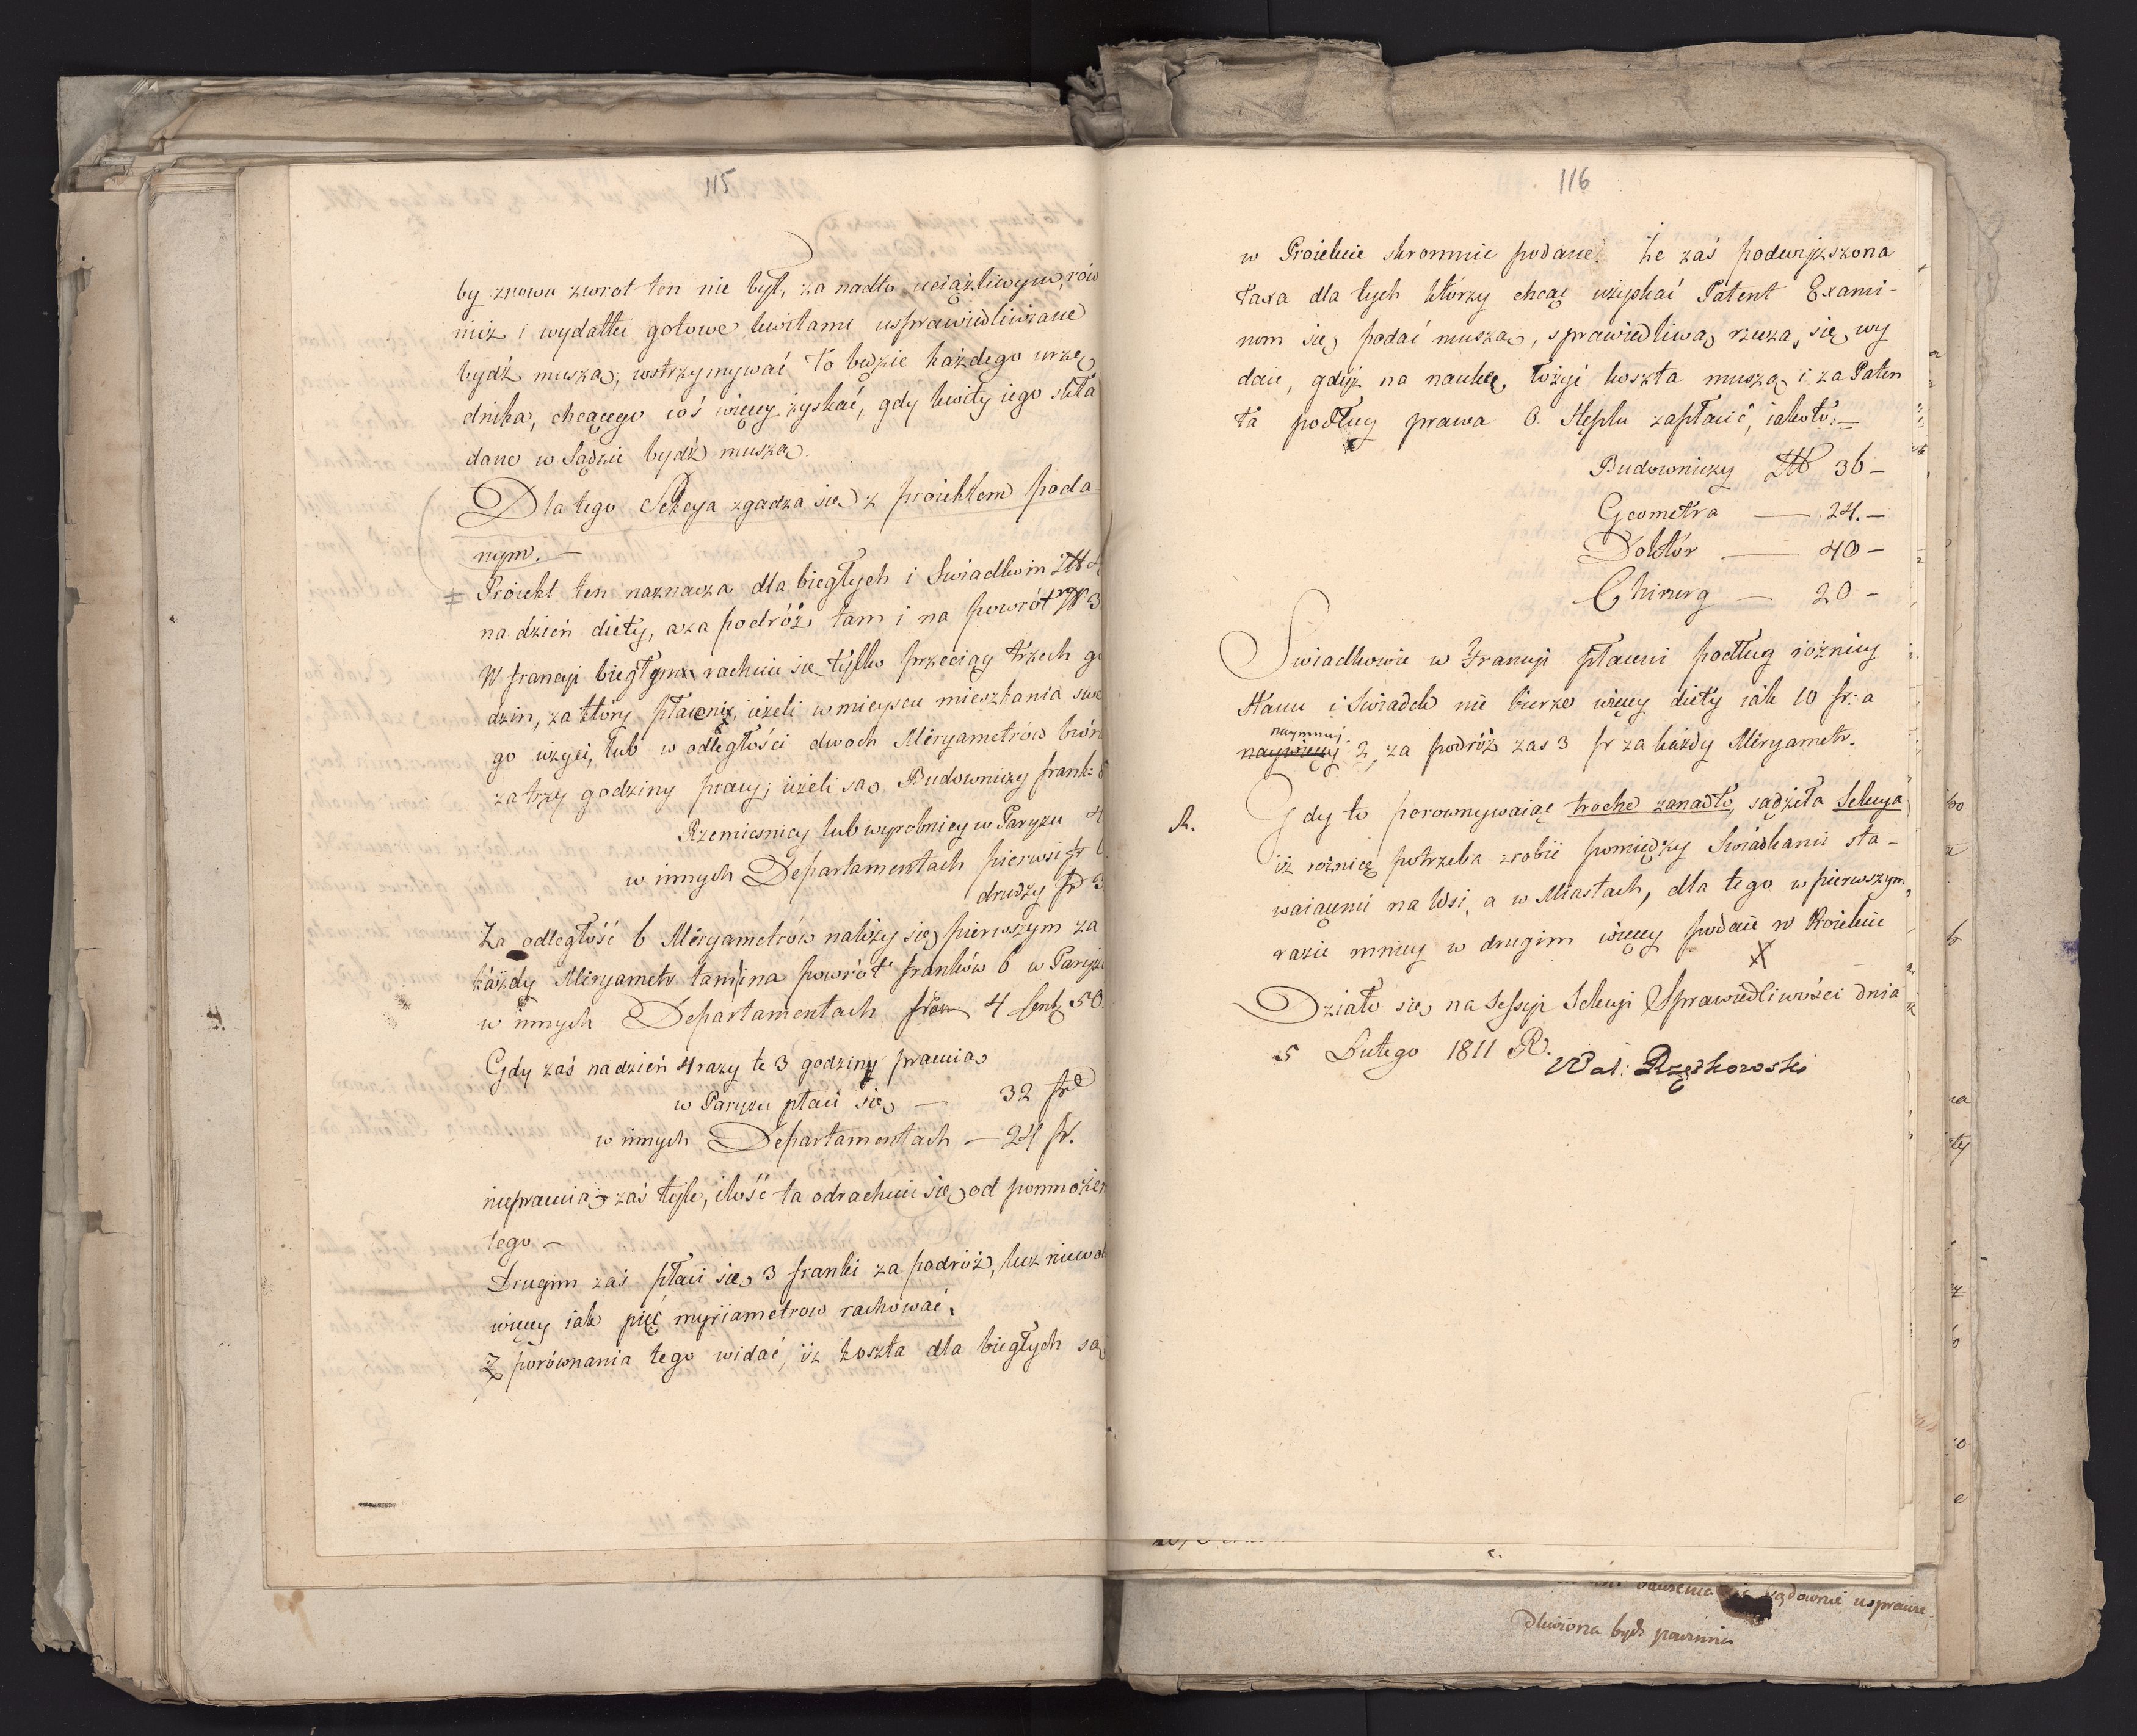 115
by znowu zwrot ten nie był, za nadto uciążliwym, rów
nież i wydatki gotowe kwitami usprawiedliwiane
bydź muszą, wstrzymywać to będzie każdego urzę
dnika, chcącego coś więcey zyskać, gdy kwity iego skła
dane w Sądzie bydź muszą.
Dla tego Sekcya zgadza się z proiektem poda
nym. —
Proiekt ten naznacza dla biegłych i Swiadków
na dzień diety, a za podróż tam i na powrót 3
W francyi biegłym rachuie się tylko przeciąg trzech go
dzin, za który płaceni, ieżeli w mieyscu mieszkania swe
go użyci, lub w odległości dwoch Méryametrów biorą
za trzy godziny pracy; ieżeli są Budowniczy frank:
Rzemieśnicy lub wyrobnicy w Paryzu 4
w innych Departamentach pierwsi fr 6
drudzy fr 3
Za odległość 6 Méryametrów należy się pierwszym za
każdy Méryametr tam i na powrót franków 6 w Paryżu
w innych Departamentach fran 4 Cent 50.
Gdy zaś na dzień 4 razy te 3 godziny pracuią
w Paryzu płaci się — 32 fr
w innych Departamentach — 24 fr.
niepracuią zaś tyle, ilość ta odrachuie się od pomnożen
tego —
Drugim zaś płaci się 3 franki za podróż, lecz niewol
więcey iak pięć myriametrow rachować.
Z porównania tego widać, iż koszta dla biegłych są
116
w Proiekcie skromnie podane. Że zaś podwyższona
taxa dla tych którzy chcąc uzyskać Patent Exami-
nom się podać muszą, sprawiedliwą rzeczą, się wy
daie, gdyż na naukę, łożyć koszta muszą i za Paten
ta podług prawa O. Stęplu zapłacić, iakoto: —
Budowniczy 36 —
Geometra — 24. —
Doktór — 40 —
Chirurg — 20 —
Swiadkowie w Francyi płaceni podług różnicy
Stanu i Swiadek nie bierze więcey diety iak 10 fr: a
naymniey
naywięcey 2, za podróż zas 3 fr za każdy Méryametr.
R.
Gdy to porownywaiąc troche zanadto, sądziła Sekcya
iż roznicę potrzeba zrobić pomiędzy Swiadkami sta-
waiącemi na Wsi, a w Miastach, dla tego w pierwszym
razie mniey w drugim więcey podaie w Proiekcie
X
Działo się na Sessyi Sekcyi Sprawiedliwości dnia
5 Lutego 1811 R.
Wal: Rzętkowski
sądownie usprawie
dliwiona bydź powinna